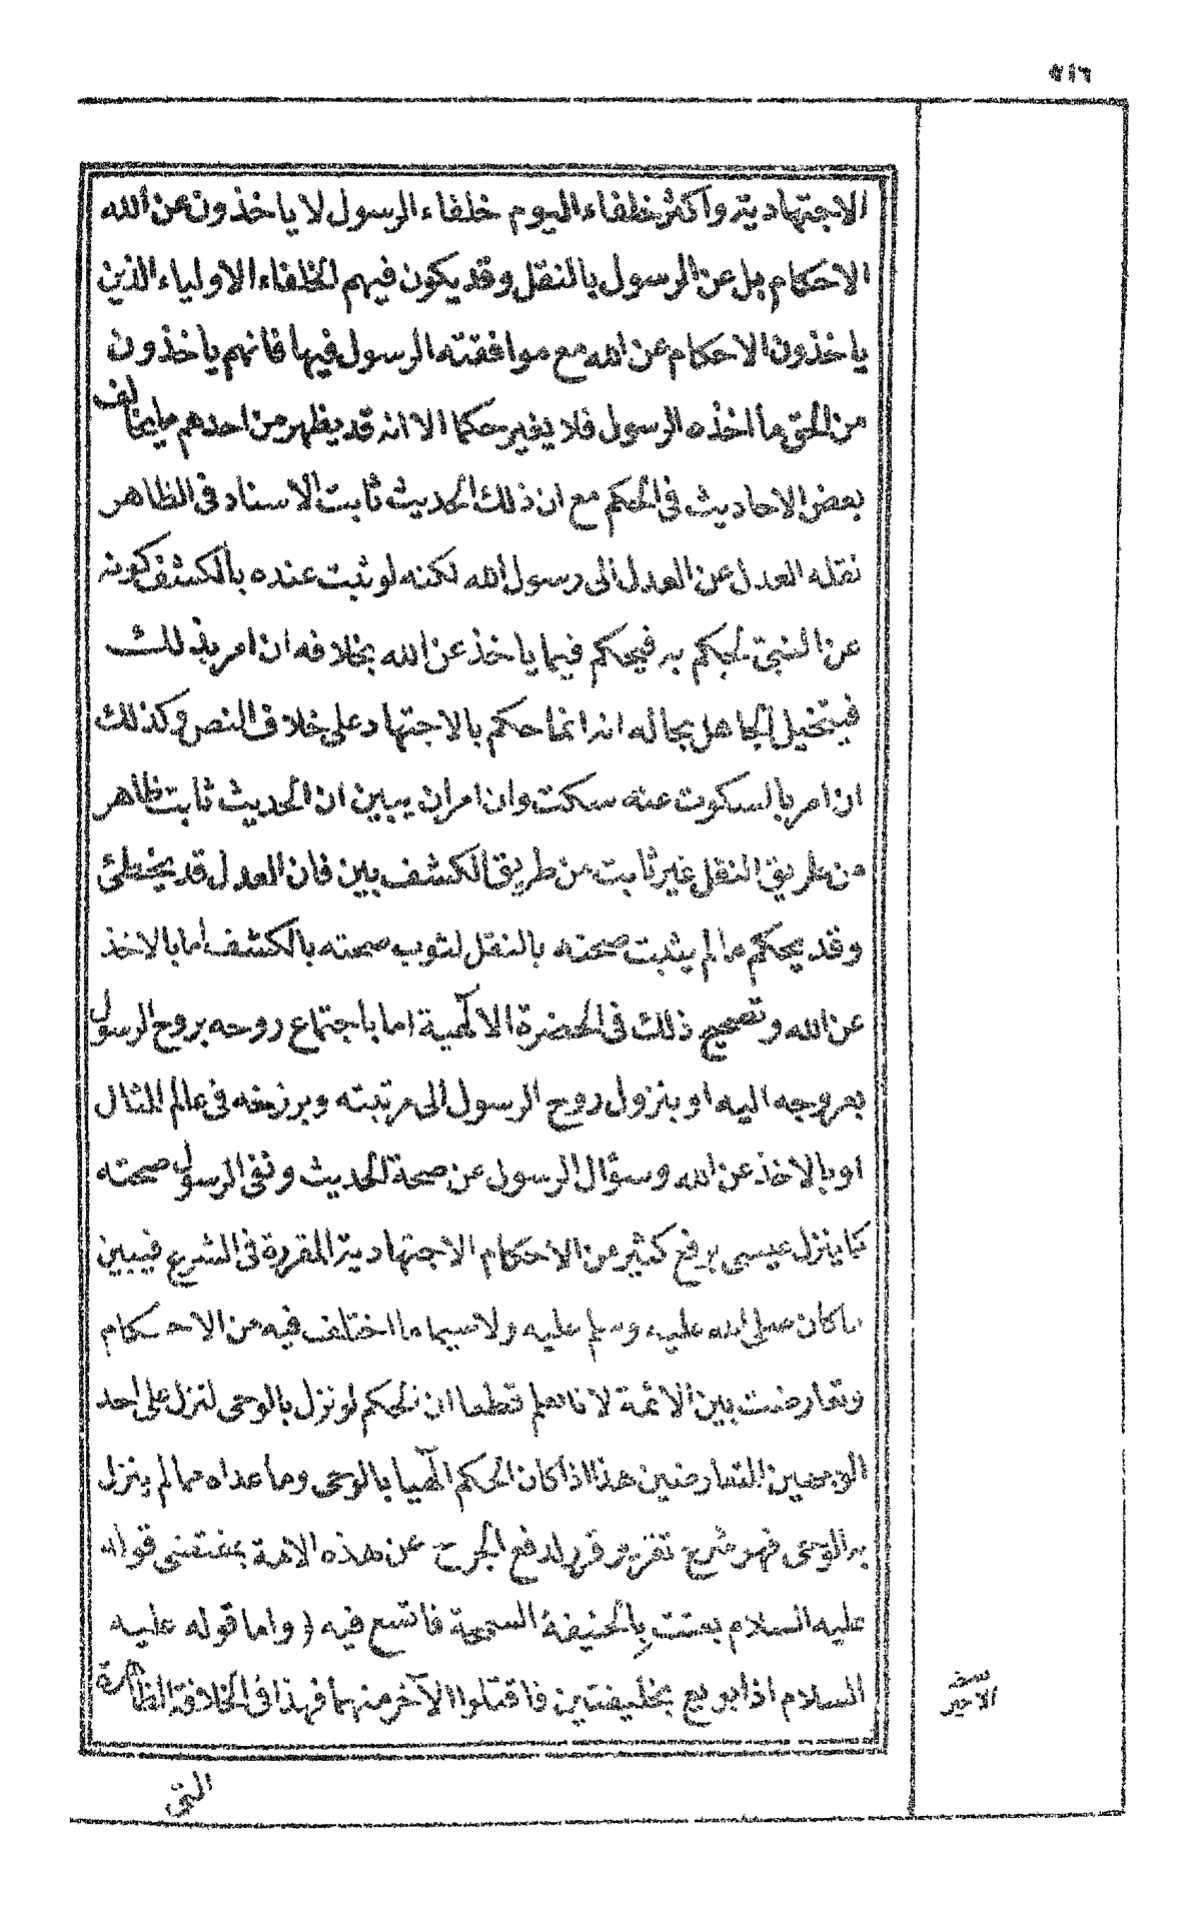 ٩١٦
الاجتهادية واكثر خلفاء اليوم خلفاء الرسول لا ياخذون عن الله
الاحكام بل عن الرسول بالنقل وقد يكون فيهم الخلفاء الاولياء الذين
ياخذون الاحكام عن الله مع موافقته الرسول فيها فانهم ياخذون
من الحق ما اخذه الرسول فلا يغير حكما الا انه قد يظهر من احدهم ما يخالف
بعض الاحاديث فى الحكم مع ان ذلك الحديث ثابت الاسناد فى الظاهر
نقله العدل عن العدل الى رسول الله لكنه لو ثبت عنده بالكشف كونه
عن النبى لحكم به فيحكم فيما ياخذ عن الله بخلافه ان امر بذلك
فيتخيل الجاهل بحاله انه انما حكم بالاجتهاد على خلاف النص وكذلك
ان امر بالسكوت عنه سكت وان امر ان يبين ان الحديث ثابت ظاهر
من طريق النقل غير ثابت من طريق الكشف بين فان العدل قد يخطئ
وقد يحكم ما لم يثبت صحته بالنقل لثوب صحته بالكشف اما بالاخذ
عن الله وتصحيح ذلك فى الحضرة الالهية اما باجتماع روحه بروح الرسول
بعروجه اليه او بنزول روح الرسول الى مرتبته وبرزخه فى عالم المثال
او بالاخذ عن الله وسؤال الرسول عن صحة الحديث ونفى الرسول صحته
كما ينزل عيسى برفع كثير من الاحكام الاجتهادية المقررة فى الشرع فيبين
ما كان صلى الله عليه وسلم عليه ولا سيما ما اختلف فيه من الاحكام
وتعارضت بين الائمة لانا نعلم قطعا ان الحكم لو نزل بالوحى لنزل على احد
الوجهين المتعارضين هذا اذا كان الحكم الهيا بالوحى وما عداه مما لم ينزل
به الوحى فهو شرع تقرير قرر لدفع الحرج عن هذه الامة بمقتضى قوله
عليه السلام بعثت بالحنيفة السمحة فاتسع فيه ( واما قوله عليه
السلام اذا بويع بخليفتين فاقتلوا الآخر منهما فهذا فى الخلافة الظاهرة
التى
الاخير